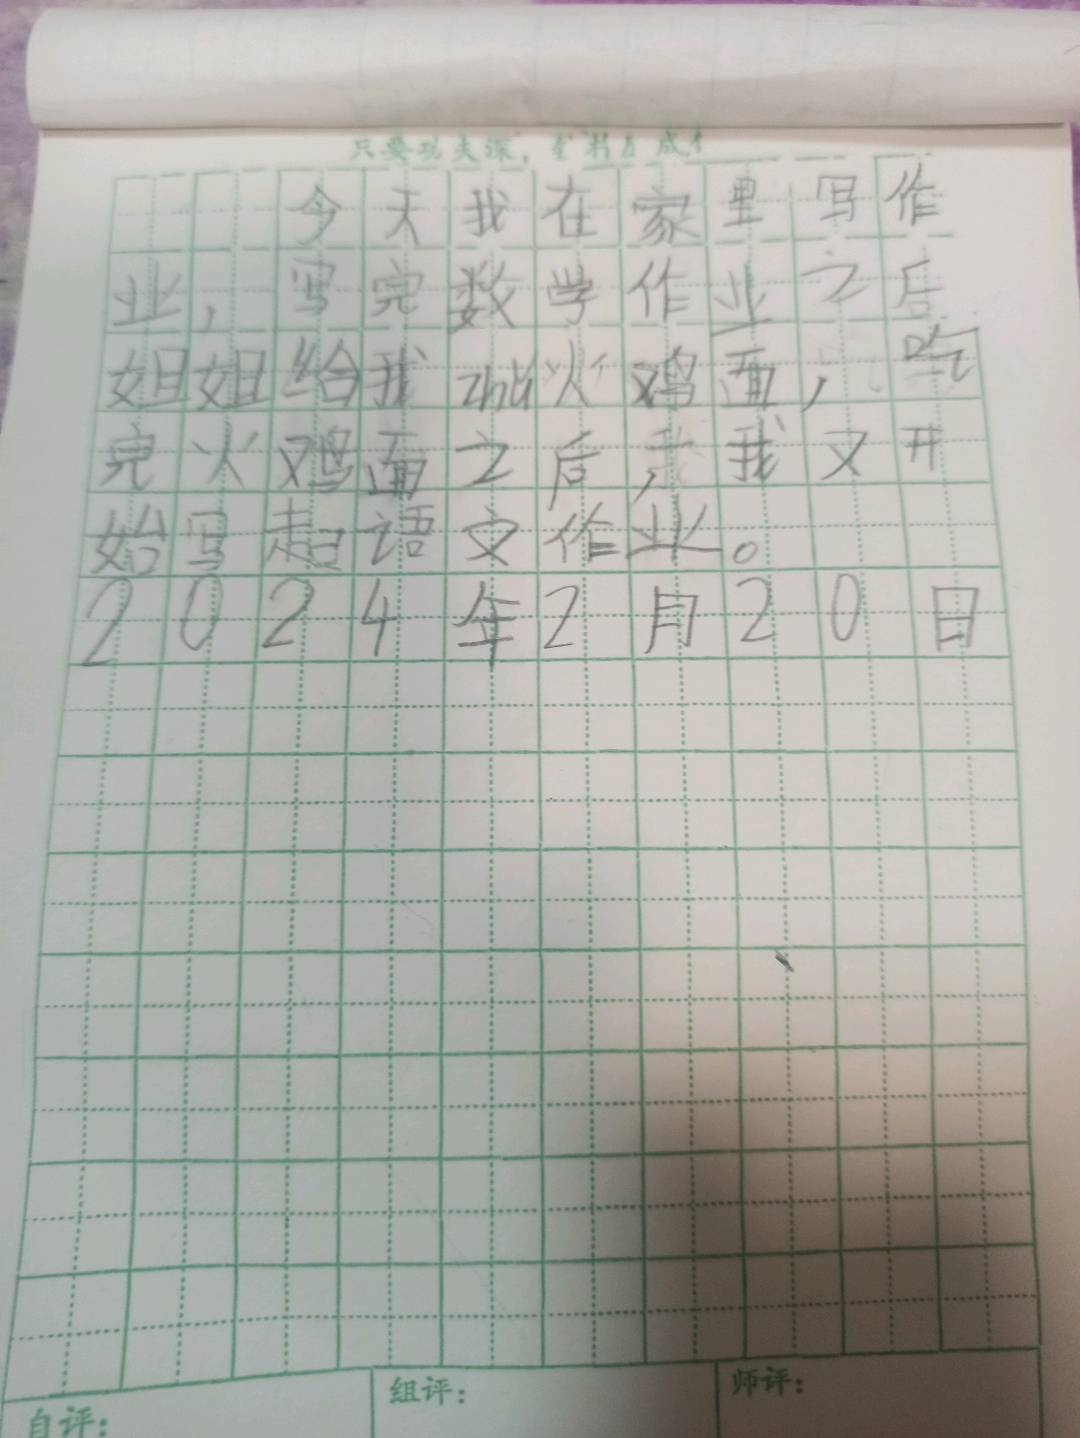 只要功夫深，
今天我在家里写作
业，写完数学作业之后
姐姐给我zhǔ火鸡面，吃
完火鸡面之后，我又开
始写起语文作业。
2024年2月20日
自评：
组评：
师评：